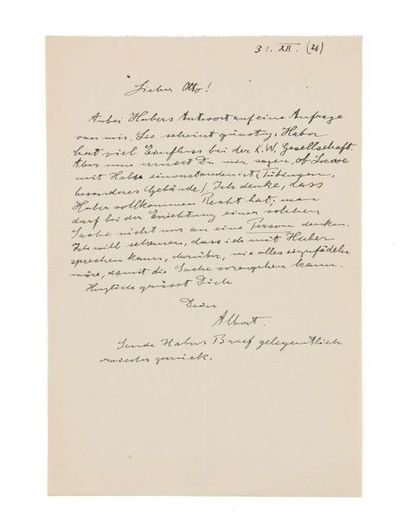 31. XII. (28)
Lieber Otto!
Anbei Habers Antwort auf eine Anfrage
von mir. Sie scheint günstig. Haber
hat viel Einfluss bei der K. W. Gesellschaft.
Aber nun musst Du mir sagen, ob
mit Haber einverstanden ist (Tübingen,
besonderes Gebäude). Ich denke, dass
Haber vollkommen Recht hat; man
darf bei der Errichtung einer solchen
Sache nicht nur an eine Person denken.
Ich will sehen, dass ich mit Haber
sprechen kann, darüber, wie alles einzufädeln
wäre, damit die Sache vorangehen kann.
Herzlich grüsst Dich
Dein
Albert.
Sende Habers Brief gelegentlich
wieder zurück.